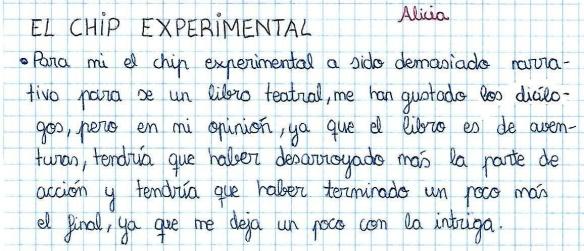 Alicia
EL CHIP EXPERIMENTAL
• Para mi el chip experimental a sido demasiado narra-
tivo para se un libro teatral, me han gustado los diálo-
gos, pero en mi opinión, ya que el libro es de aven-
turas, tendría que haber desarroyado más la parte de
acción y tendría que haber terminado un poco más
el final, ya que me deja un poco con la intriga.